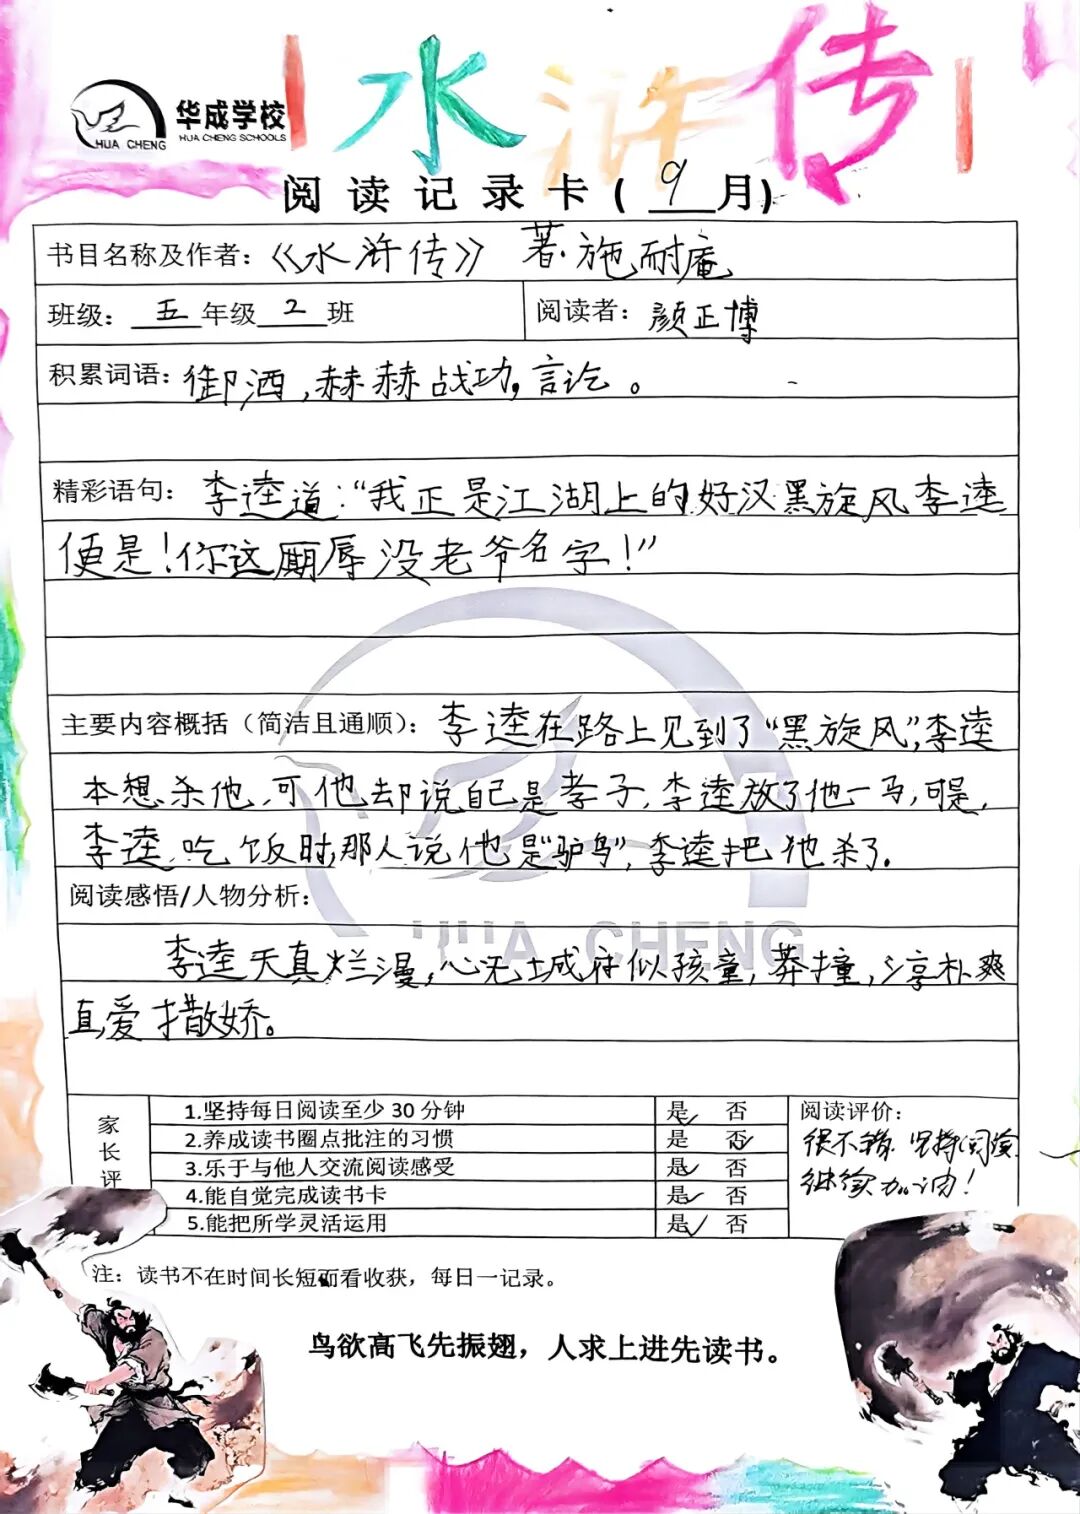 水浒传
华成学校
HUA CHENG SCHOOLS
HUA CHENG
阅读记录卡(9月)
书目名称及作者:《水浒传》 著·施耐庵
班级:五年级2班 阅读者:颜正博
积累词语:御酒,赫赫战功,言讫。
精彩语句:李逵道:“我正是江湖上的好汉黑旋风李逵
便是!你这厮辱没老爷名字!”
主要内容概括(简洁且通顺):李逵在路上见到了“黑旋风”,李逵
本想杀他,可他却说自己是孝子,李逵放了他一马,可是,
李逵吃饭时,那人说他是“驴鸟”,李逵把他杀了.
阅读感悟/人物分析:
HUA CHENG
李逵天真烂漫,心无城府似孩童,莽撞,淳朴爽
直,爱撒娇。
家长评
1.坚持每日阅读至少30分钟 是✓ 否
2.养成读书圈点批注的习惯 是 否✓
3.乐于与他人交流阅读感受 是✓ 否
4.能自觉完成读书卡 是✓ 否
5.能把所学灵活运用 是✓ 否
阅读评价:
很不错. 坚持阅读
继续加油!
注:读书不在时间长短而看收获,每日一记录。
鸟欲高飞先振翅,人求上进先读书。